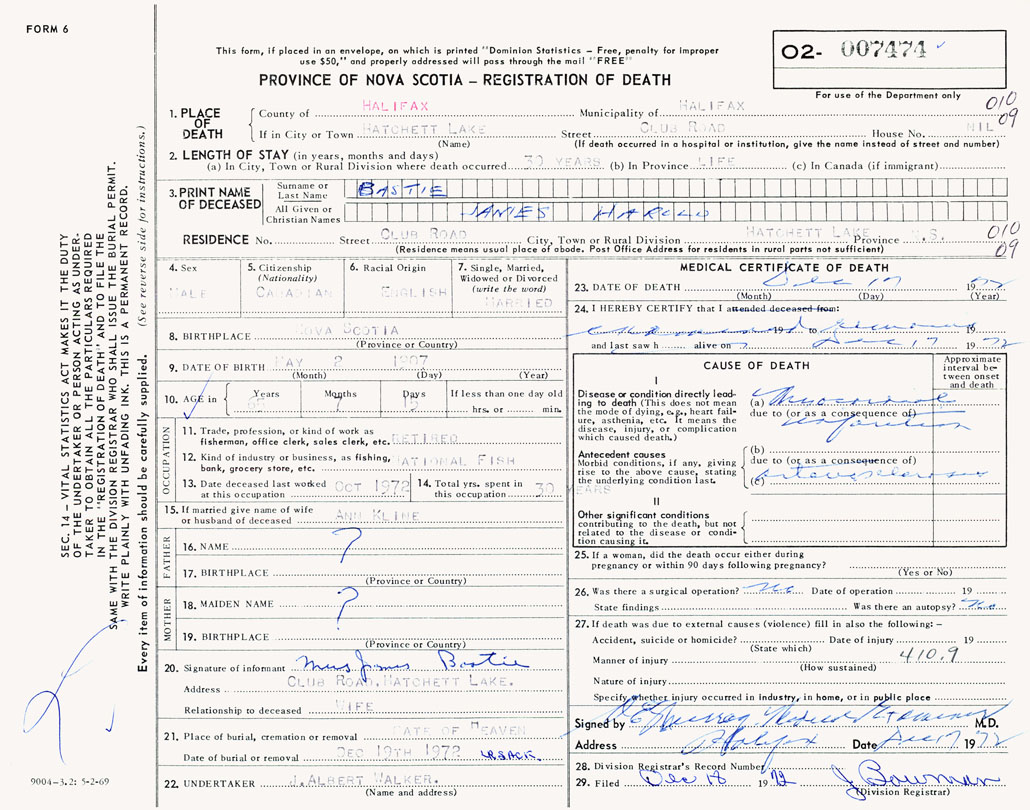 FORM 6
This form, if placed in an envelope, on which is printed "Dominion Statistics – Free, penalty for improper
use $50," and properly addressed will pass through the mail "FREE"
PROVINCE OF NOVA SCOTIA – REGISTRATION OF DEATH
O2- 007474
For use of the Department only
010
09
1. PLACE OF DEATH
County of HALIFAX Municipality of HALIFAX
If in City or Town HATCHETT LAKE Street CLUB ROAD House No. NIL
(Name) (If death occurred in a hospital or institution, give the name instead of street and number)
2. LENGTH OF STAY (in years, months and days)
(a) In City, Town or Rural Division where death occurred 30 YEARS. (b) In Province LIFE (c) In Canada (if immigrant)
3. PRINT NAME OF DECEASED
Surname or Last Name BASTIE
All Given or Christian Names JAMES HAROLD
RESIDENCE No. Street CLUB ROAD City, Town or Rural Division HATCHETT LAKE Province N.S.
(Residence means usual place of abode. Post Office Address for residents in rural parts not sufficient)
010
09
4. Sex MALE
5. Citizenship (Nationality) CANADIAN
6. Racial Origin ENGLISH
7. Single, Married, Widowed or Divorced (write the word) MARRIED
8. BIRTHPLACE NOVA SCOTIA
(Province or Country)
9. DATE OF BIRTH MAY 2 1907
(Month) (Day) (Year)
10. AGE in Years 65 Months 7 Days 15 If less than one day old hrs. or min.
OCCUPATION
11. Trade, profession, or kind of work as fisherman, office clerk, sales clerk, etc. RETIRED
12. Kind of industry or business, as fishing, bank, grocery store, etc. NATIONAL FISH
13. Date deceased last worked at this occupation OCT 1972 14. Total yrs. spent in this occupation 30 YEARS
15. If married give name of wife or husband of deceased ANN KLINE
FATHER
16. NAME ?
17. BIRTHPLACE
(Province or Country)
MOTHER
18. MAIDEN NAME ?
19. BIRTHPLACE
(Province or Country)
20. Signature of informant Mrs James Bastie
Address CLUB ROAD, HATCHETT LAKE.
Relationship to deceased WIFE
21. Place of burial, cremation or removal GATE OF HEAVEN
Date of burial or removal DEC 19TH 1972
22. UNDERTAKER J. ALBERT WALKER.
(Name and address)
MEDICAL CERTIFICATE OF DEATH
23. DATE OF DEATH Dec 17 1972
(Month) (Day) (Year)
24. I HEREBY CERTIFY that I attended deceased from:
19 to 19
and last saw h alive on Dec 17 1972
CAUSE OF DEATH
Approximate interval between onset and death
I
Disease or condition directly leading to death (This does not mean the mode of dying, e.g., heart failure, asthenia, etc. It means the disease, injury, or complication which caused death.)
(a) Myocardial
due to (or as a consequence of)
infarction
Antecedent causes
Morbid conditions, if any, giving rise to the above cause, stating the underlying condition last.
(b)
due to (or as a consequence of)
(c) arteriosclerosis
II
Other significant conditions contributing to the death, but not related to the disease or condition causing it.
25. If a woman, did the death occur either during pregnancy or within 90 days following pregnancy?
(Yes or No)
26. Was there a surgical operation? No Date of operation 19
State findings Was there an autopsy? No
27. If death was due to external causes (violence) fill in also the following: –
Accident, suicide or homicide? Date of injury 19
(State which)
Manner of injury 410.9
(How sustained)
Nature of injury
Specify whether injury occurred in industry, in home, or in public place
Signed by Murray Medical Examiner M.D.
Address Halifax Date Dec 17 1972
28. Division Registrar's Record Number
29. Filed Dec 18 1972 J Bowman
(Division Registrar)
SEC. 14 – VITAL STATISTICS ACT MAKES IT THE DUTY
OF THE UNDERTAKER OR PERSON ACTING AS UNDER-
TAKER TO OBTAIN ALL THE PARTICULARS REQUIRED
IN THE "REGISTRATION OF DEATH" AND TO FILE THE
SAME WITH THE DIVISION REGISTRAR WHO SHALL ISSUE THE BURIAL PERMIT.
WRITE PLAINLY WITH UNFADING INK. THIS IS A PERMANENT RECORD.
Every item of information should be carefully supplied. (See reverse side for instructions.)
9004-3.2: 5-2-69